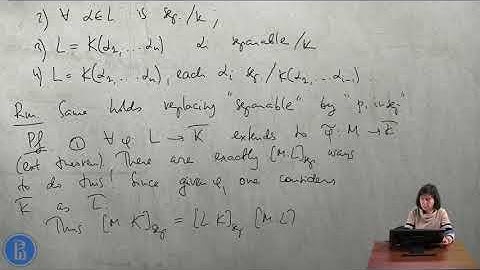 2) ∀ α∈L is sep./K,
3) L = K(α₁,...αₙ) αᵢ separable/K
4) L = K(α₁,...αₙ), each αᵢ sep. / K(α₁,...αᵢ₋₁)
Rm. Same holds replacing "separable" by "p. insep"
Pf. ① ∀ φ: L → K̄ extends to φ̃: M → K̄
(ext theorem). There are exactly [M:L]sep ways
to do this! Since given φ, one considers
K̄ as L̄.
Thus [M K]sep = [L K]sep [M L]